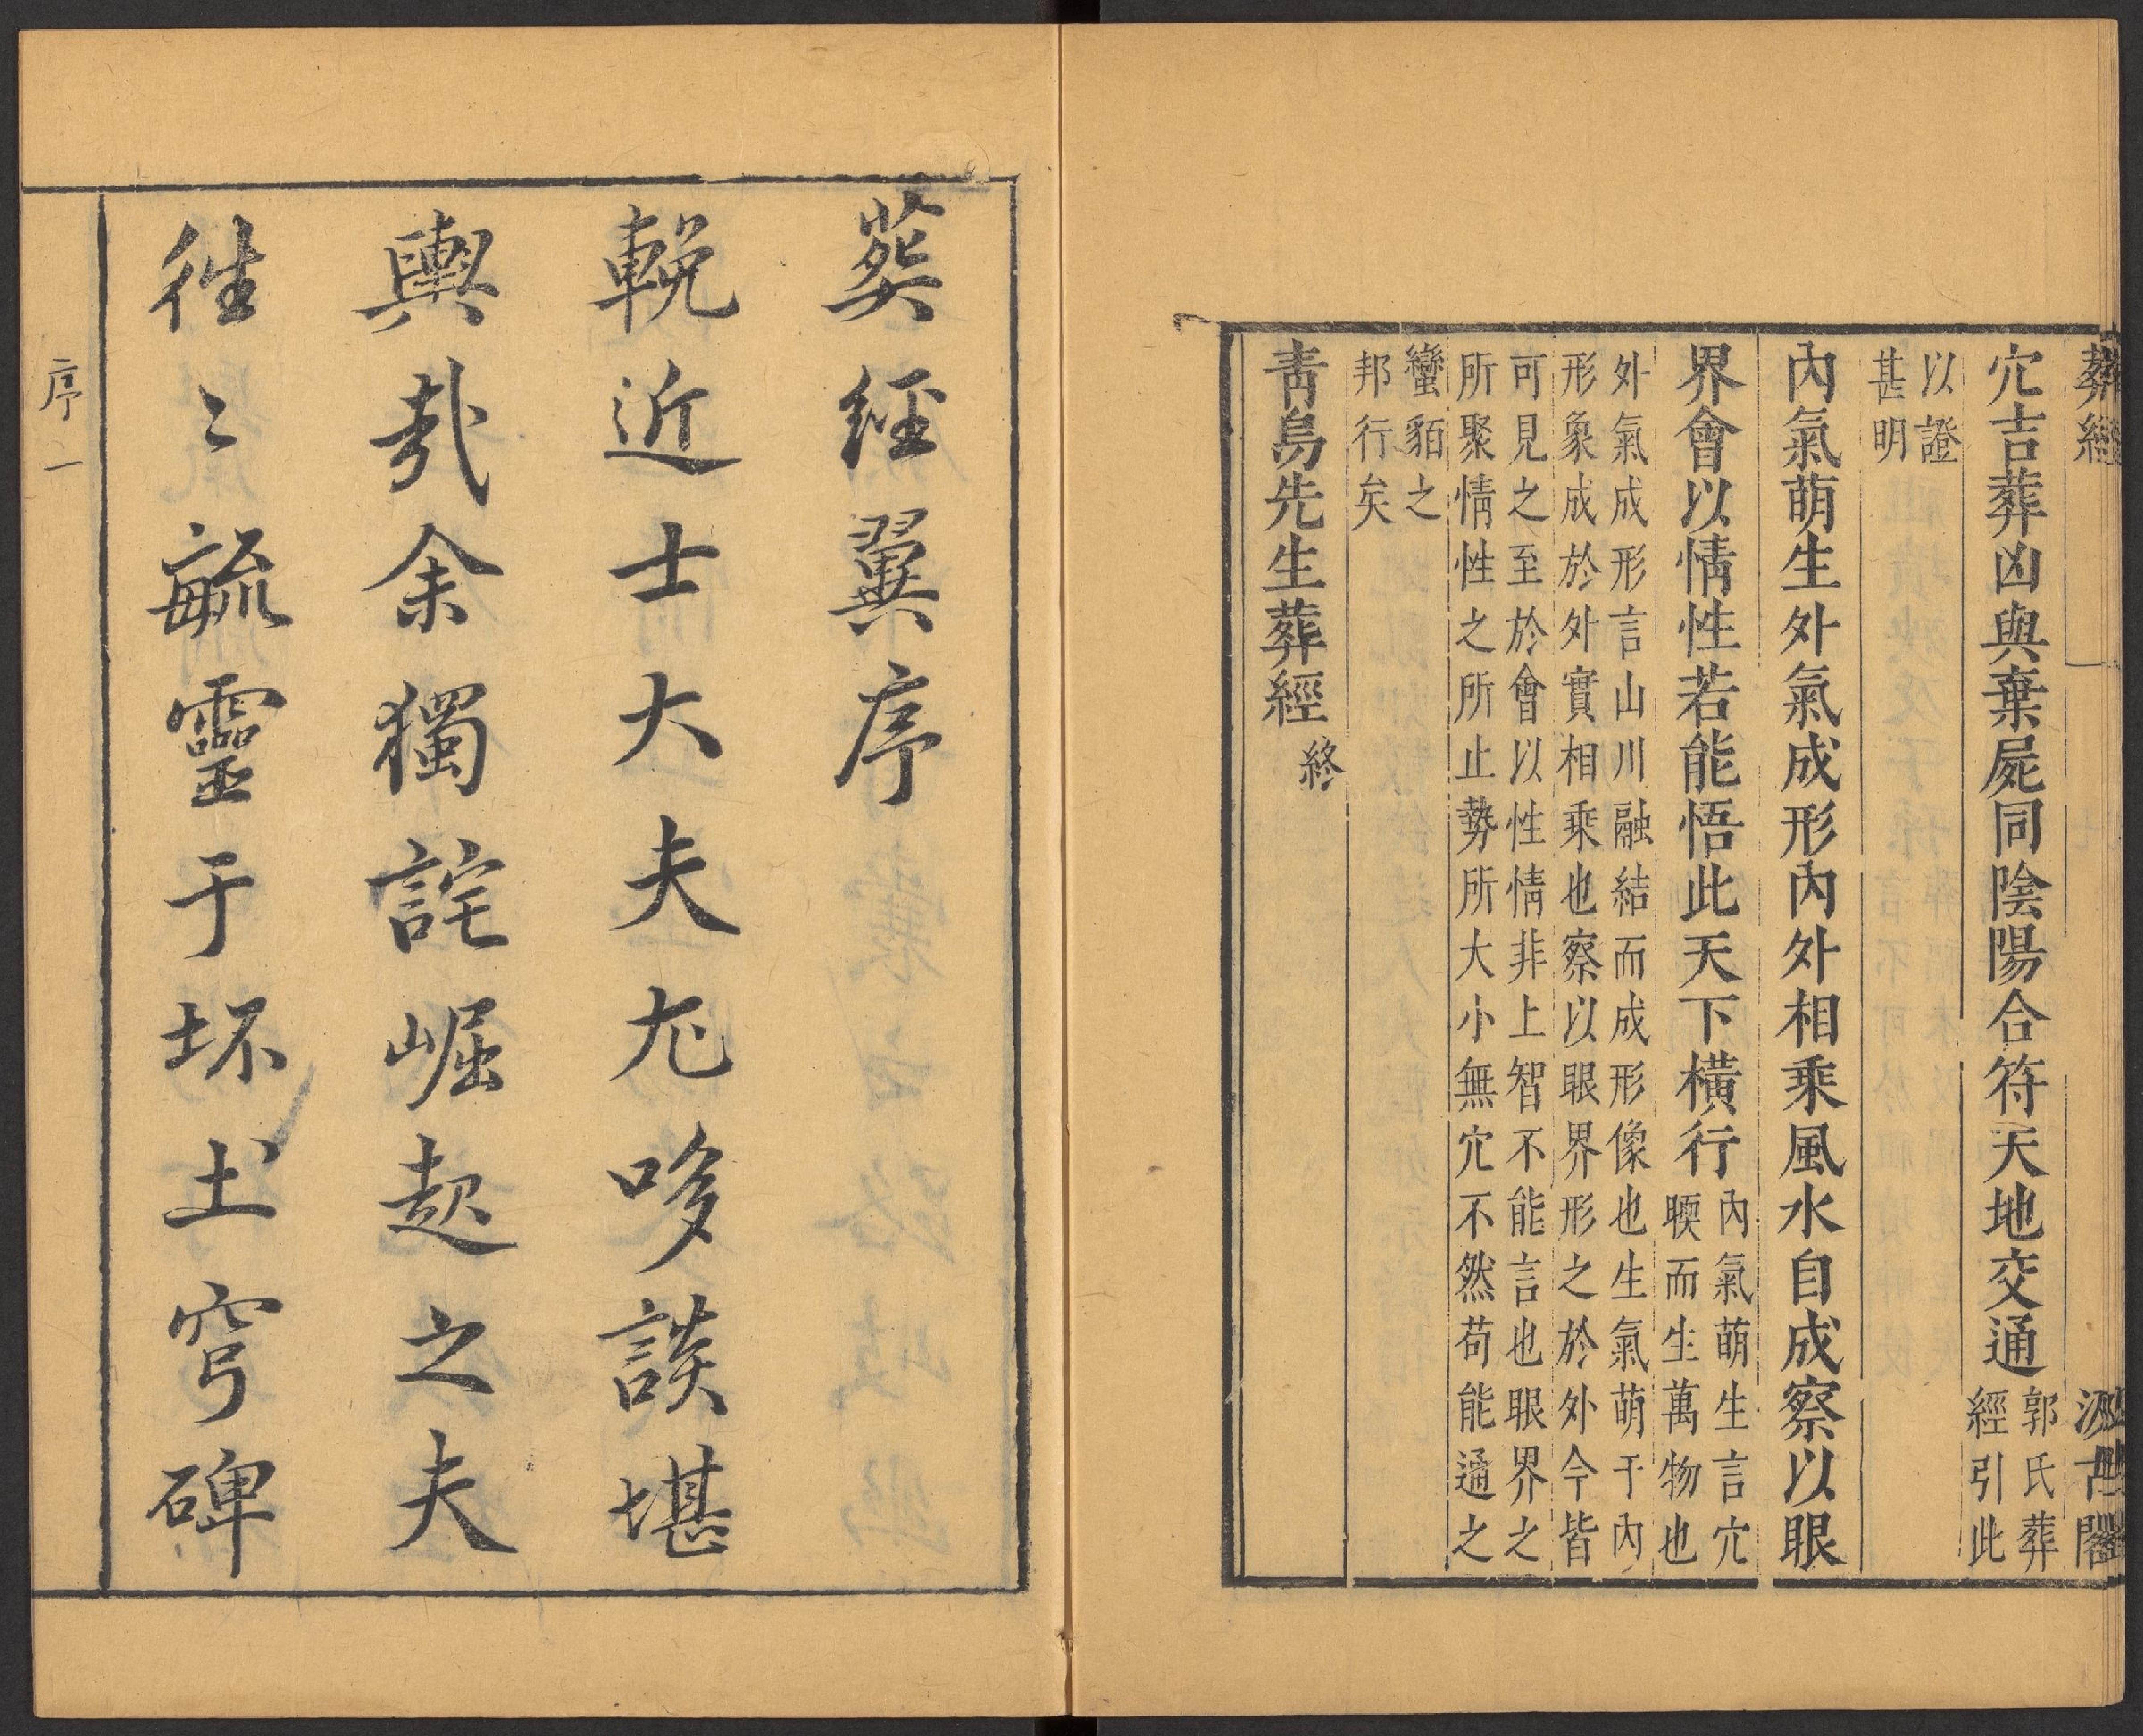 葬經
汲古閣
穴吉葬凶與棄屍同陰陽合符天地交通
郭氏葬
經引此
以證
甚明
內氣萌生外氣成形內外相乘風水自成察以眼
界會以情性若能悟此天下橫行
內氣萌生言穴
暖而生萬物也
外氣成形言山川融結而成形像也生氣萌于內
形象成於外實相乘也察以眼界形之於外今皆
可見之至於會以性情非上智不能言也眼界之
所聚情性之所止勢所大小無穴不然苟能通之
蠻貊之
邦行矣
靑烏先生葬經 終
葬經翼序
輓近士大夫尤哆談堪
輿哉余獨詫崛起之夫
往〻毓靈于坏土穹碑
序 一